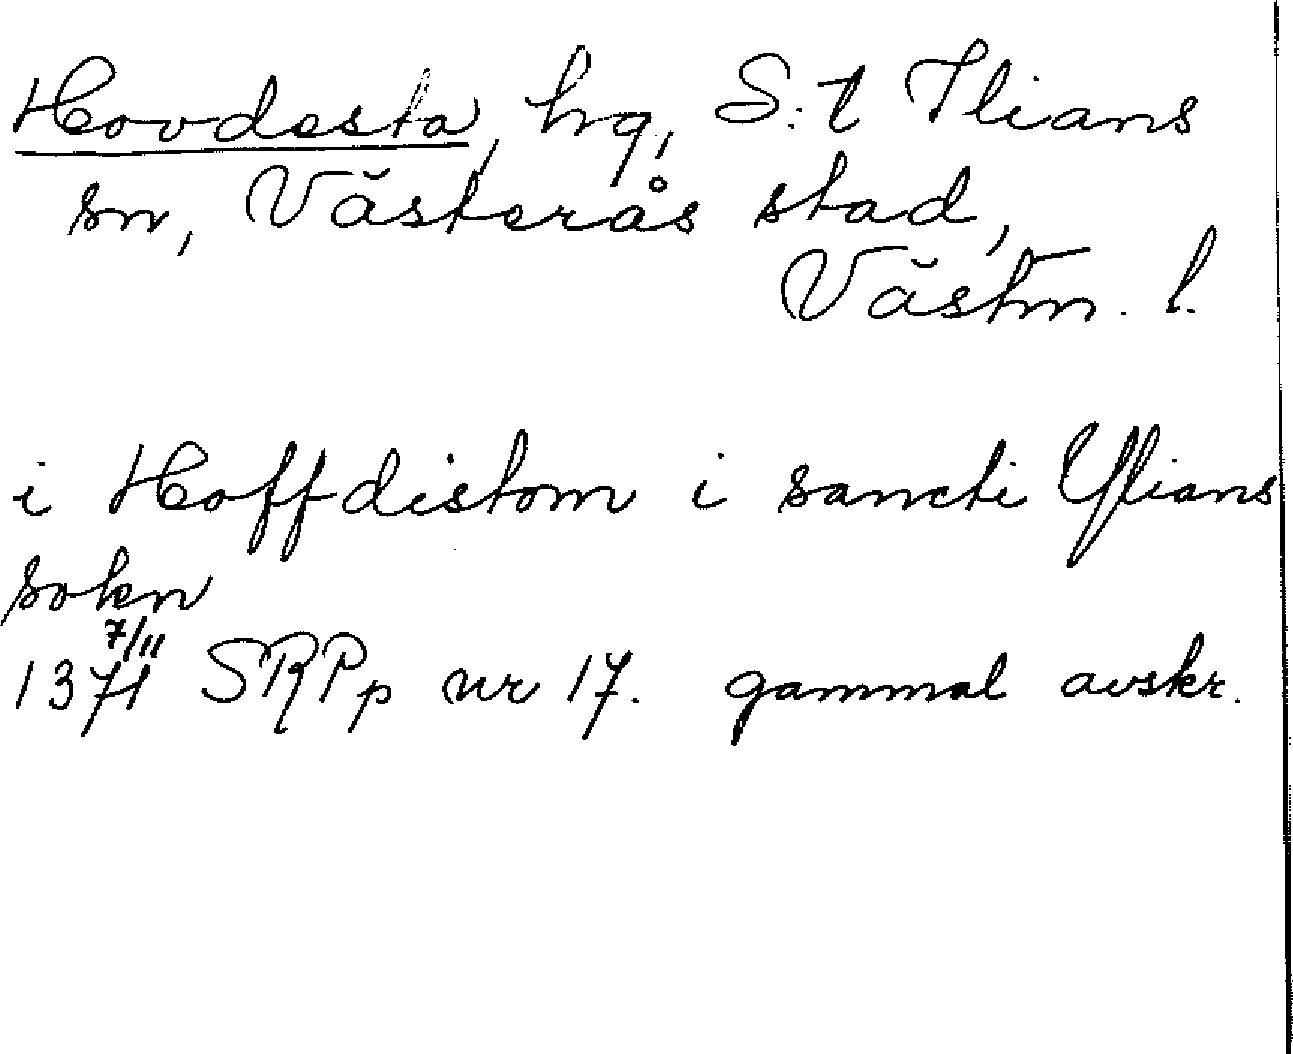 Hovdesta, hg, S:t Ilians
sn, Västerås stad,
Västm. l.
i Hoffdistom i sancti Ylians
sokn
1371 7/11 SRPp nr 17. gammal avskr.